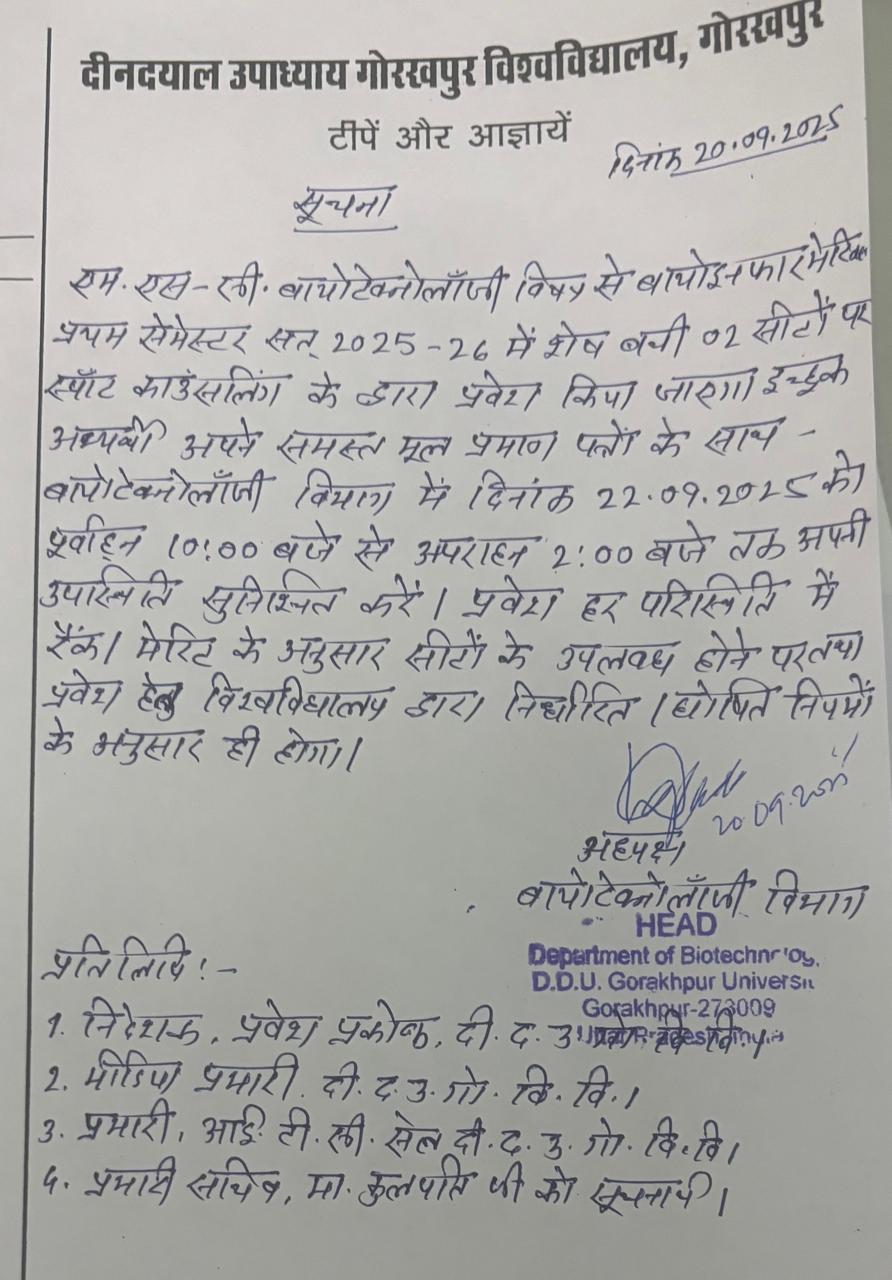 दीनदयाल उपाध्याय गोरखपुर विश्वविद्यालय, गोरखपुर
टीपें और आज्ञायें
दिनांक 20.09.2025
सूचना
एम. एस-सी. बायोटेक्नोलॉजी विषय से बायोइनफारमेटिक्स
प्रथम सेमेस्टर सत्र 2025-26 में शेष बची 02 सीटों पर
स्पॉट काउंसलिंग के द्वारा प्रवेश किया जाएगा। इच्छुक
अभ्यर्थी अपने समस्त मूल प्रमाण पत्रों के साथ -
बायोटेक्नोलॉजी विभाग में दिनांक 22.09.2025 को
पूर्वाहन 10:00 बजे से अपराहन 2:00 बजे तक अपनी
उपास्थिति सुनिश्चित करें। प्रवेश हर परिस्थिति में
रैंक / मेरिट के अनुसार सीटों के उपलब्ध होने पर तथा
प्रवेश हेतु विश्वविद्यालय द्वारा निर्धारित / घोषित नियमों
के अनुसार ही होगा।
20.09.2025
अध्यक्ष
बायोटेक्नोलॉजी विभाग
HEAD
Department of
D.D.U. Gorakhpur
Gorakhpur-273009
प्रतिलिपि :-
1. निदेशक, प्रवेश प्रकोष्ठ, दी. द. उ. वि.
2. मीडिया प्रभारी. दी. द. उ. गो. वि. वि.।
3. प्रभारी, आई. टी. सी. सेल दी. द. उ. गो. वि. वि।
4. प्रभारी सचिव, मा. कुलपति जी को सूचनार्थ।